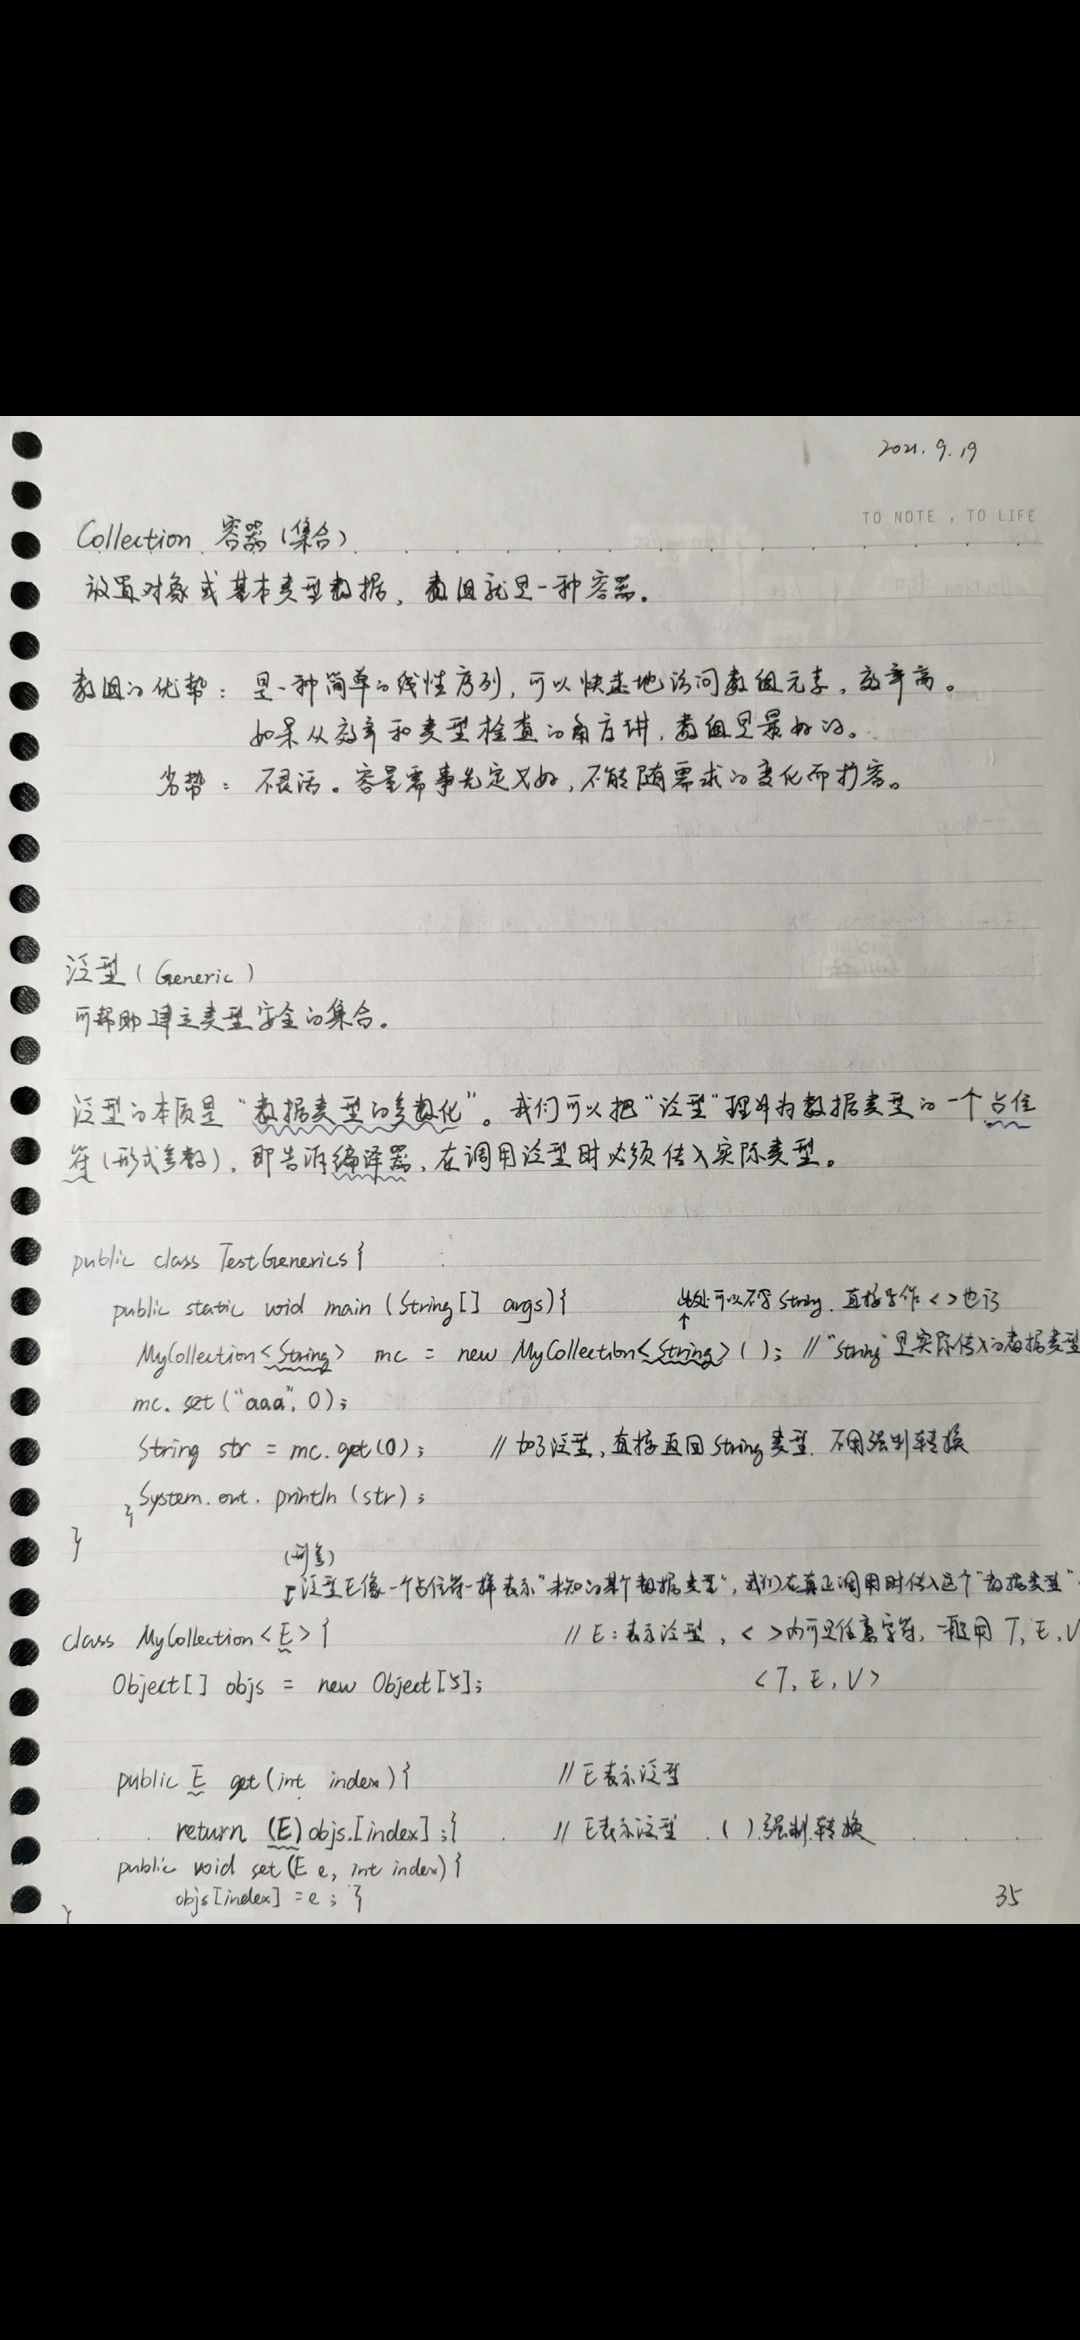 2021.9.19
TO NOTE , TO LIFE
Collection 容器(集合)
放置对象或基本类型数据,数组就是一种容器。
数组的优势: 是一种简单的线性序列,可以快速地访问数组元素,效率高。
如果从效率和类型检查的角度讲,数组是最好的。
劣势: 不灵活。容量需事先定义好,不能随需求的变化而扩容。
泛型(Generic)
可帮助建立类型安全的集合。
泛型的本质是“数据类型的参数化”。我们可以把“泛型”理解为数据类型的一个占位
符(形式参数),即告诉编译器,在调用泛型时必须传入实际类型。
public class TestGenerics{
public static void main (String[] args){
此处可以不写String,直接写作< >也行
MyCollection<String> mc = new MyCollection<String>(); // "String"是实际传入的数据类型
mc.set("aaa",0);
String str = mc.get(0); // 加了泛型,直接返回String类型,不用强制转换
System.out.println(str);
}
}
(形参)
泛型E像一个占位符一样表示“未知的某个数据类型”,我们在真正调用时传入这个“数据类型”
class MyCollection<E>{ // E:表示泛型,< >内可是任意字符,一般用 T,E,V
Object[] objs = new Object[5]; <T,E,V>
public E get(int index){ // E表示泛型
return (E)objs.[index];} // E表示泛型 ( )强制转换
public void set(E e, int index){
objs[index]=e; }
}
35